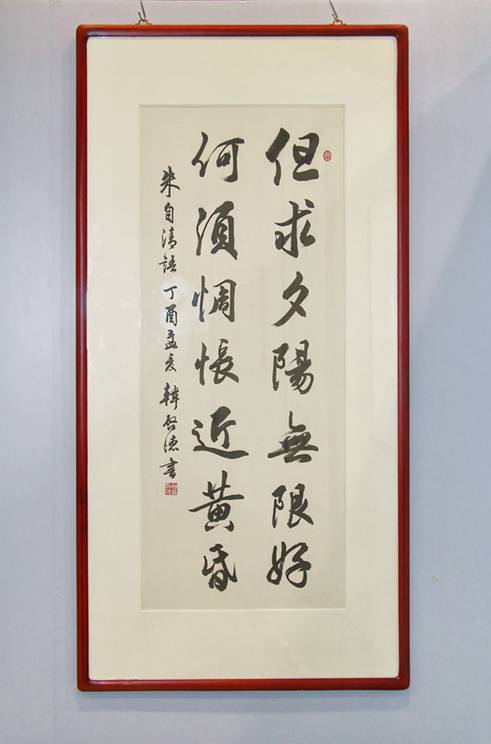 但求夕陽無限好
何須惆悵近黄昏
朱自清語 丁酉孟夏 韓啓德書